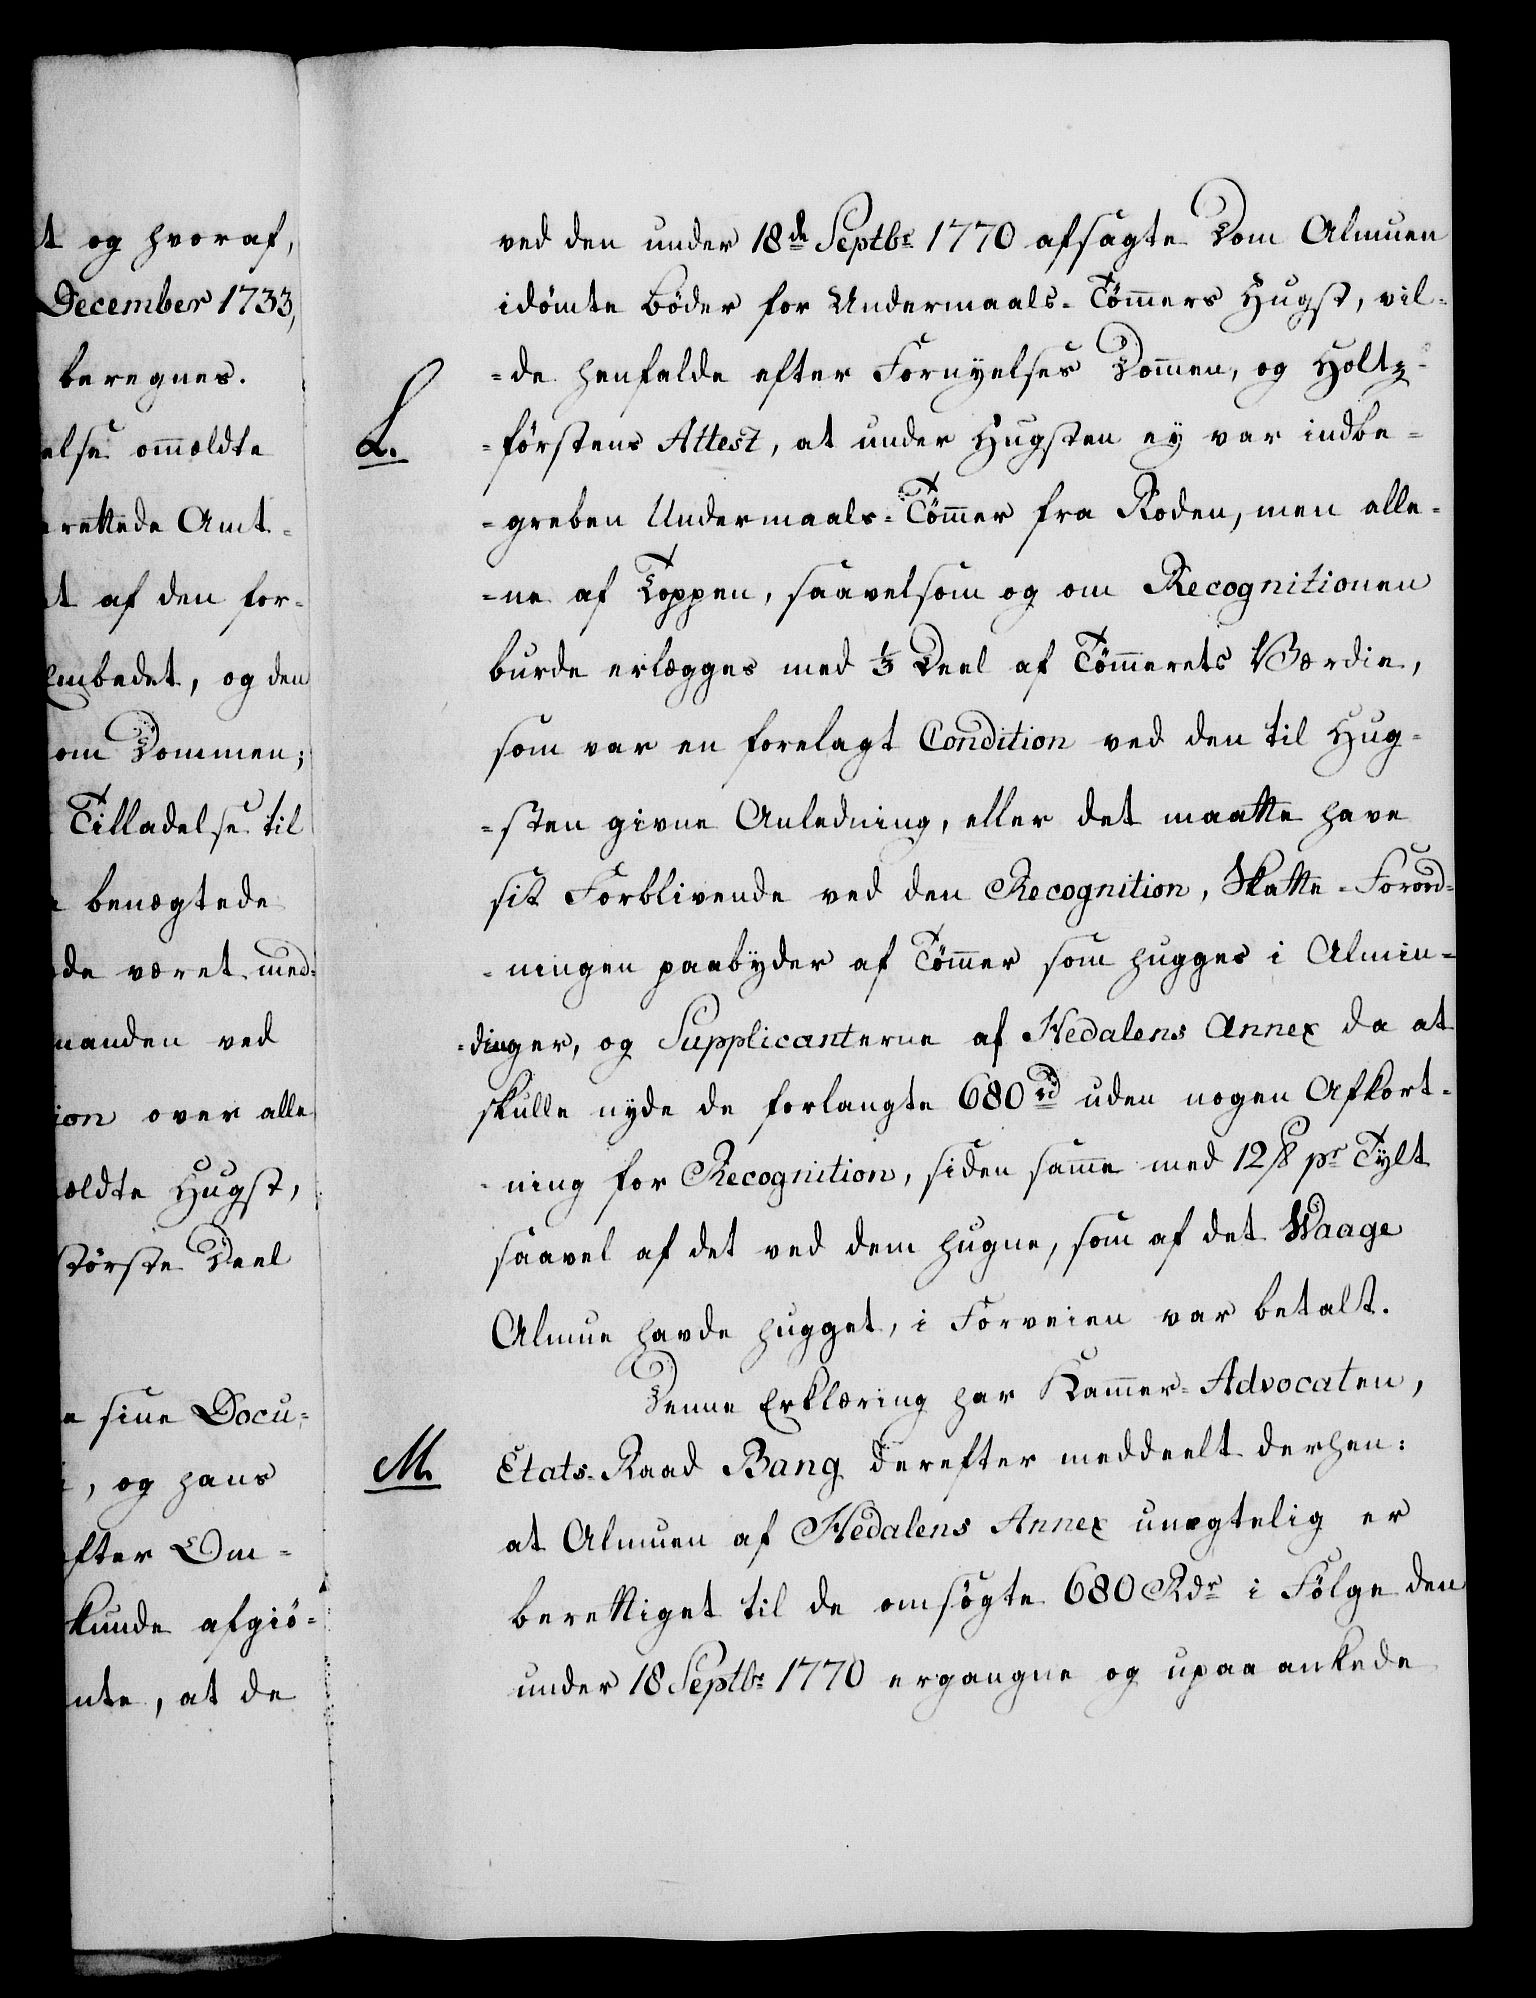 t og hvoraf,
December 1733,
beregnes.
else ommeldte
rettede Amt-
t af den for-
Embedet, og den
om Dommen;
Tilladelse til
benægtede
de været med-
manden ved
ion over alle
eldte Hugst,
største Deel
e sine Docu-
, og hans
efter Om-
kunde afgiö-
nte, at de
ved den under 18de Septbr 1770 afsagte Dom Almuen
idömte Böder for Undermaals-Tömmers Hugst, vil-
-de henfalde efter Fornyelses Dommen, og Holtz-
L.
-förstens Attest, at under Hugsten ey var indbe-
-greben Undermaals-Tömmer fra Roden, men alle-
-ne af Toppen, saavelsom og om Recognitionen
burde erlægges med 1/3 Deel af Tömmerets Værdie,
som var en forelagt Condition ved den til Hug-
-sten givne Anledning, eller det maatte have
sit Forblivende ved den Recognition, Skatte-Forord-
-ningen paabyder af Tömmer som hugges i Almin-
-dinger, og Supplicanterne af Hedalens Annex da at
skulle nyde de forlangte 680 rd uden nogen Afkort-
-ning for Recognition, siden samme med 12 ß pr Tylt
saavel af det ved dem hugne, som af det Waage
Almue havde hugget, i Forveien var betalt.
Denne Erklæring har Kammer-Advocaten,
M.
Etats-Raad Bang derefter meddeelt derhen:
at Almuen af Hedalens Annex unægtelig er
berettiget til de ansögte 680 Rdr i Fölge den
under 18 Septbr 1770 ergangne og upaaankede